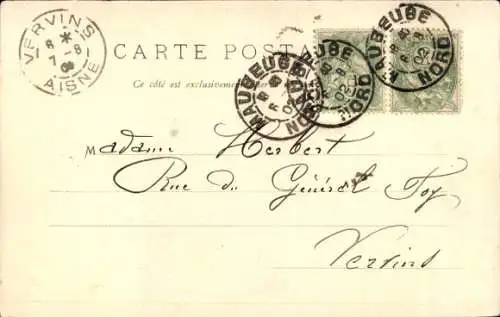 VERVINS
8 *
7 - 8
AISNE
CARTE POSTA
Ce côté est exclusivement
MAUBEUGE
NORD
MAUBEUGE
NORD
MAUBEUGE
NORD
Madame Herbert
Rue du Général Foy
Vervins